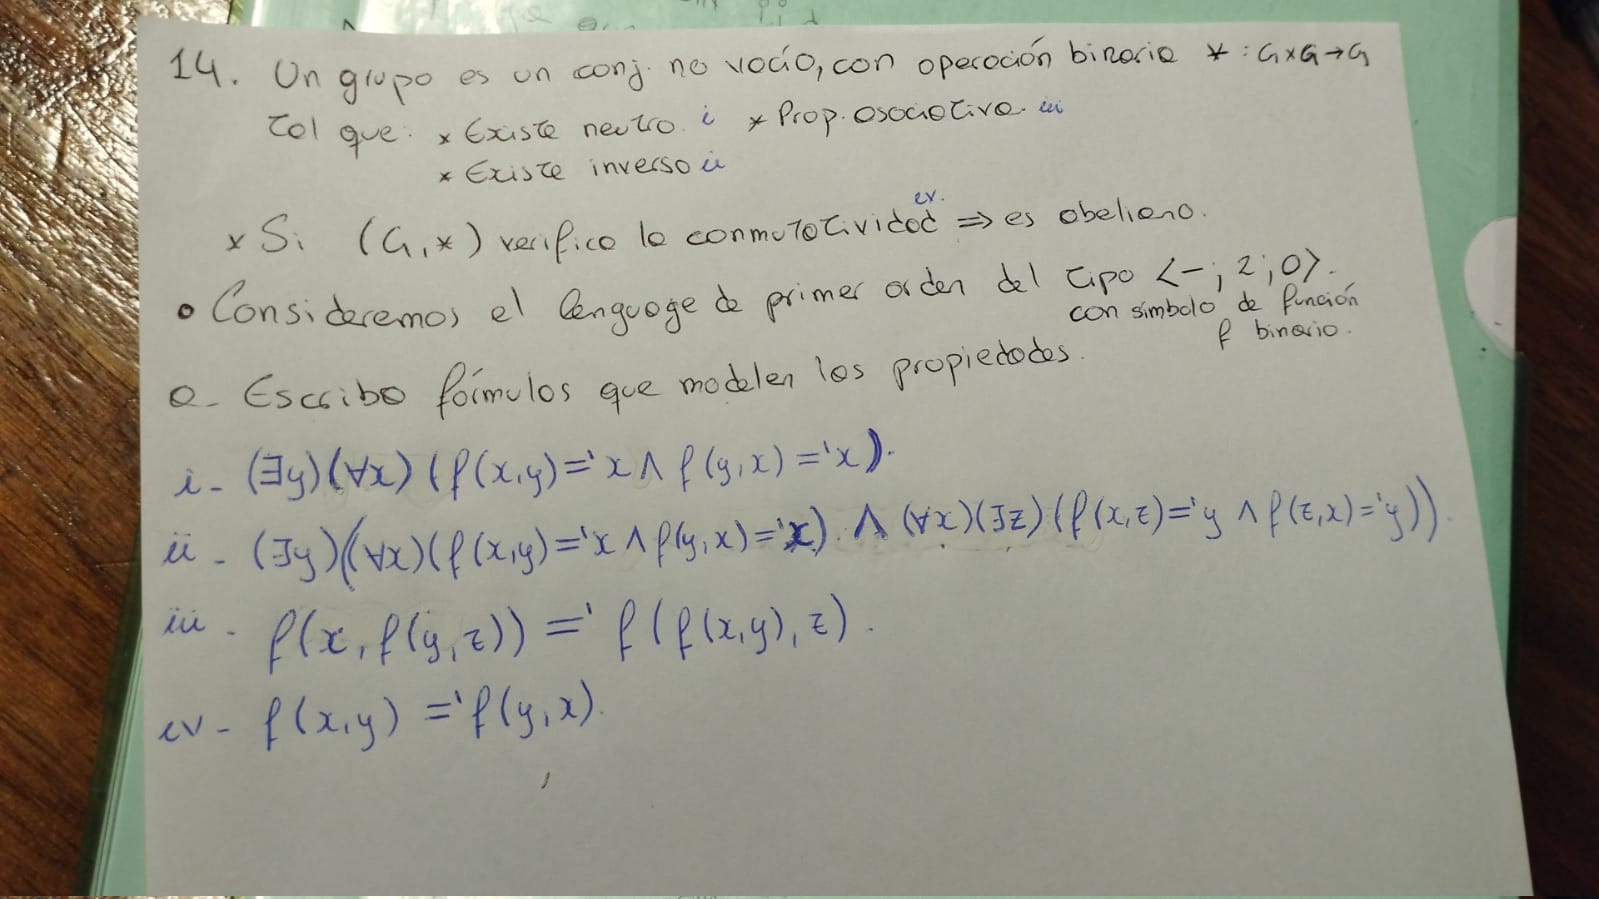 14. Un grupo es un conj. no vacío, con operación binaria * : G×G→G
Tal que: * Existe neutro. i * Prop. asociativa. iii
* Existe inverso ii
* Si (G,*) verifica la conmutatividad iv. ⇒ es abeliano.
• Consideremos el lenguage de primer orden del tipo <-; 2; 0>.
con símbolo de función
f binario.
a- Escribo fórmulas que modelen las propiedades.
i- (∃y)(∀x) (f(x,y)='x ∧ f(y,x)='x).
ii- (∃y)((∀x)(f(x,y)='x ∧ f(y,x)='x) ∧ (∀x)(∃z)(f(x,z)='y ∧ f(z,x)='y)).
iii- f(x, f(y,z)) =' f(f(x,y), z).
iv- f(x,y) =' f(y,x).